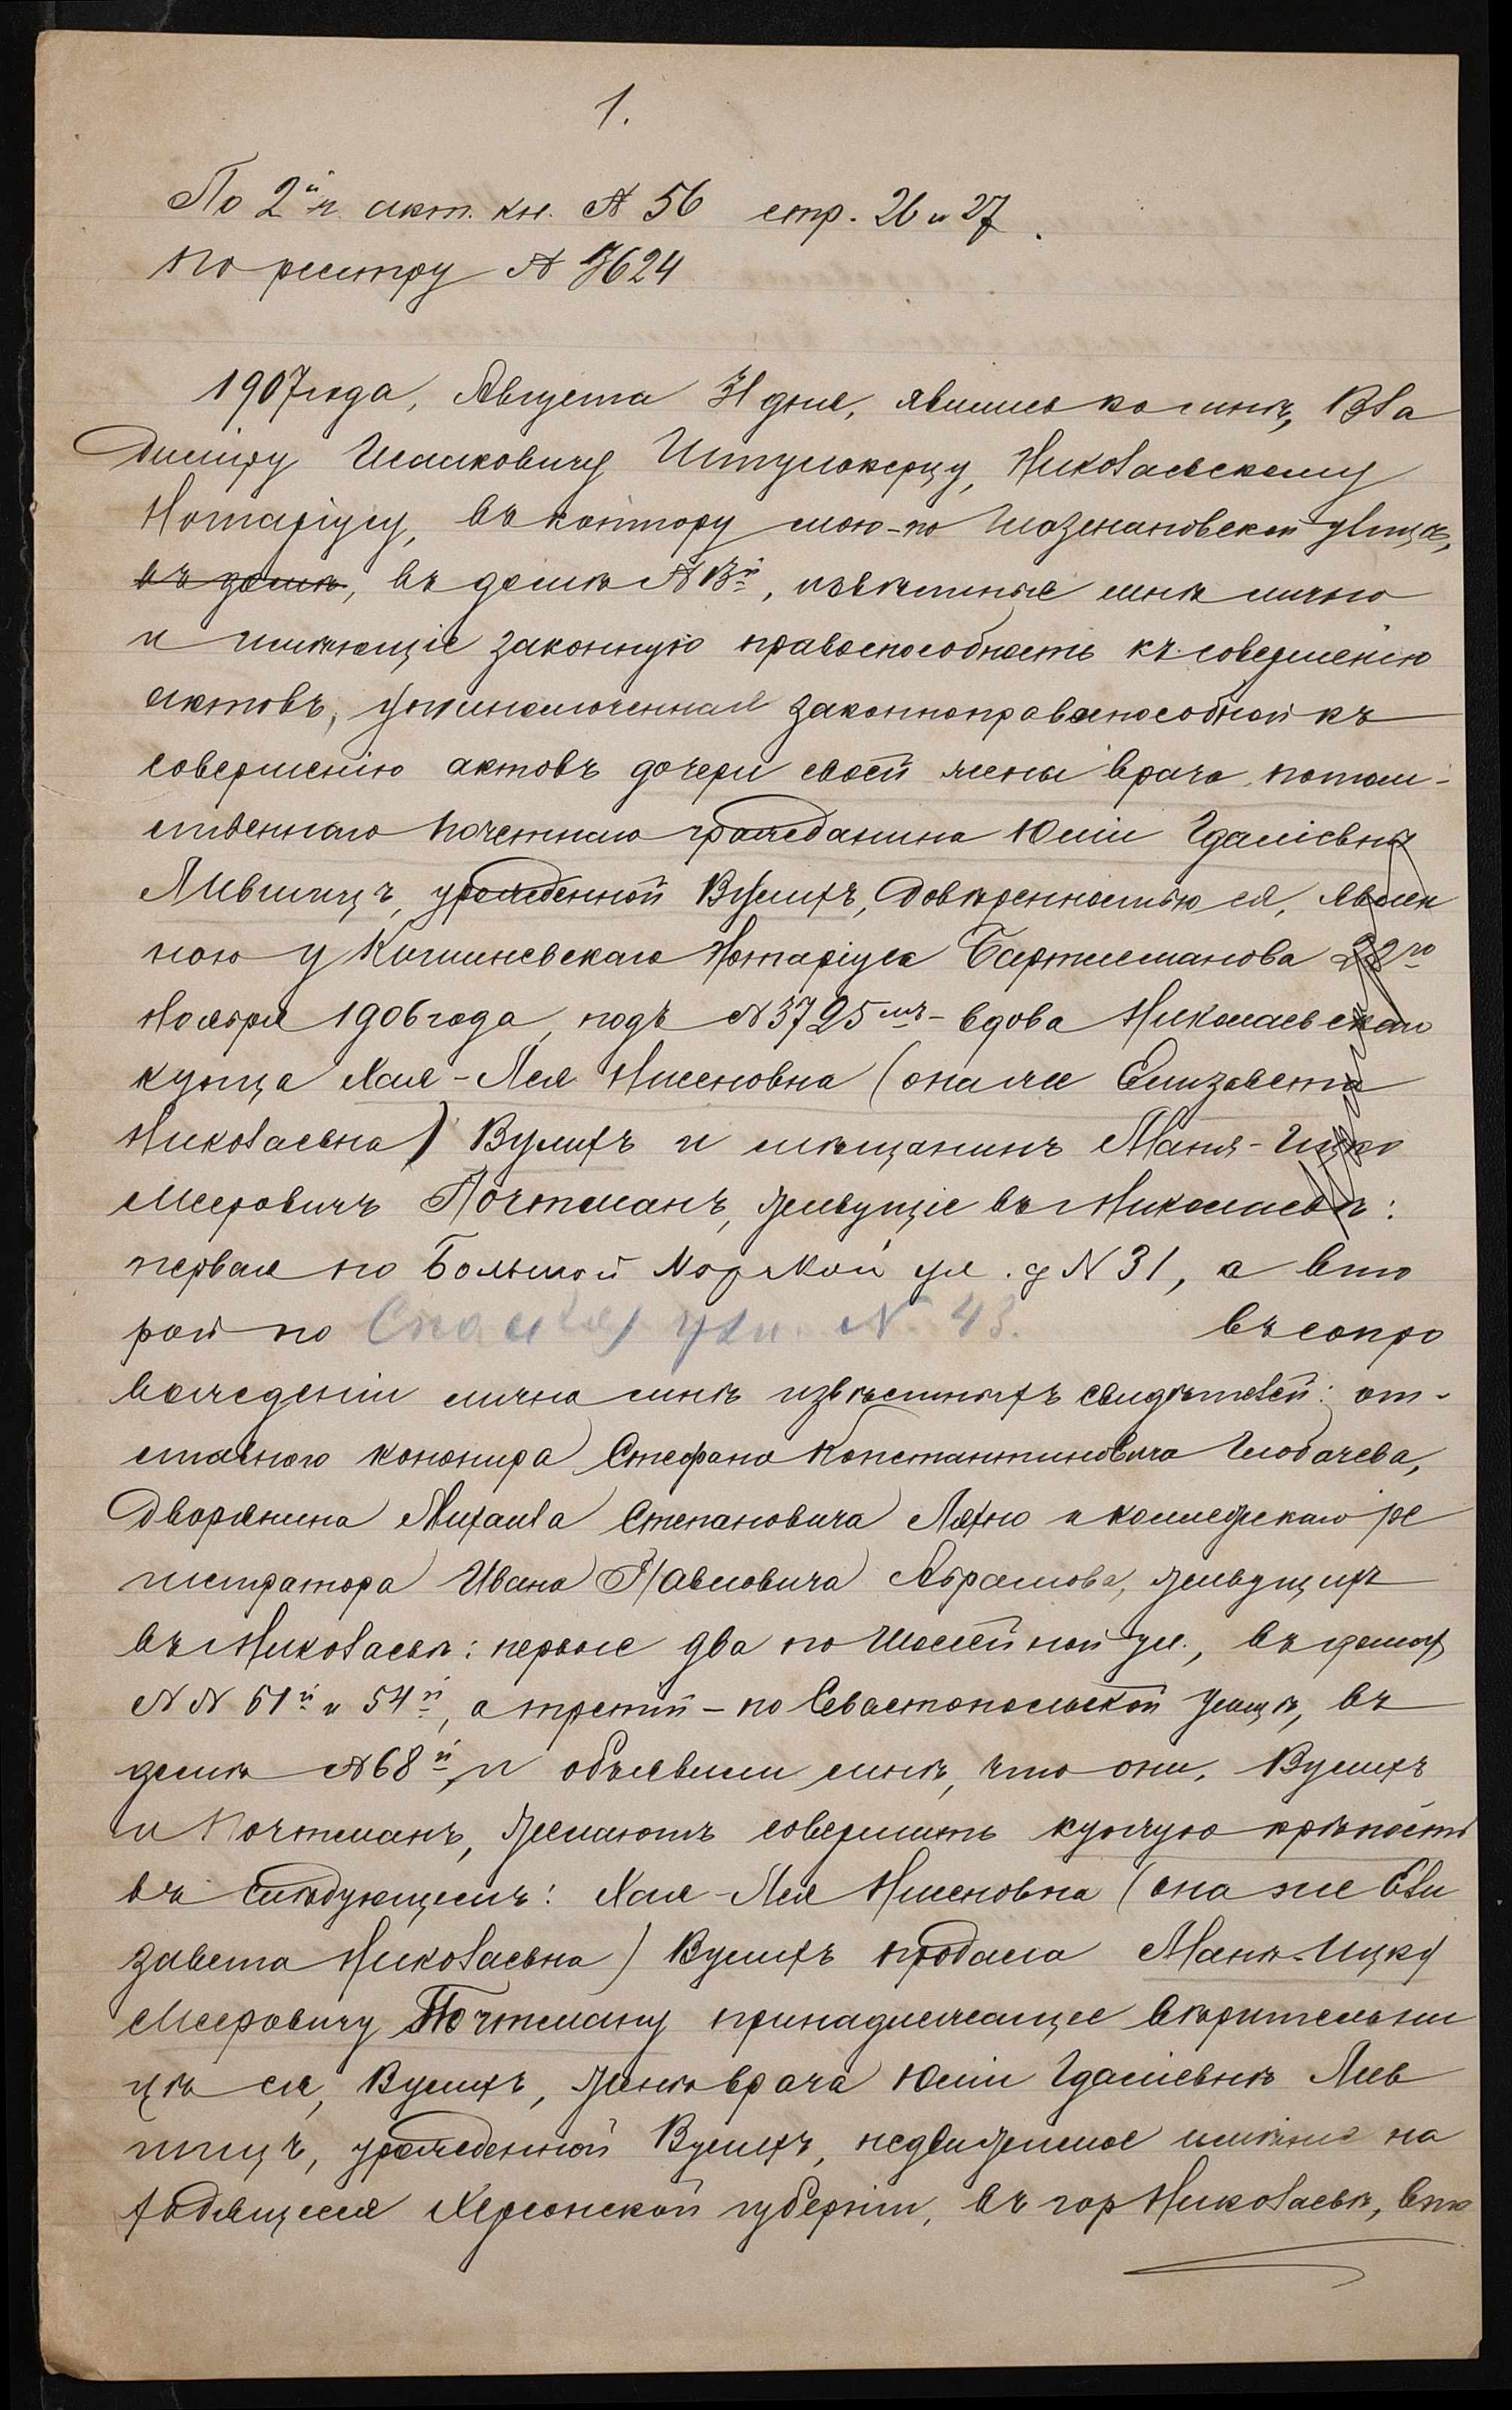 1.
По 2й ч. акт. кн. № 56 стр. 26 и 27.
По реестру № 3624
1907 года, Августа 31 дня, явились ко мнѣ, Вла
диміру Исааковичу Штулькерцу, Николаевскому
Нотаріусу, въ контору мою - по Глазенаповской улицѣ,
въ домѣ, въ домѣ № 3й, извѣстные мнѣ лично
и имѣющіе законную правоспособность къ совершенію
актовъ, уполномоченная законноправоспособной къ
совершенію актовъ дочери своей жены врача, потом-
ственнаго почетнаго гражданина Юліи Гдаліевны
Лившицъ, урожденной Вулихъ, довѣренностью ея, явлен
ною у Кишиневскаго Нотаріуса 22го
Ноября 1906 года, подъ № 3725мъ - вдова Николаевскаго
купца Хая-Лея Нисеновна (она же Елизавета
Николаевна) Вулихъ и мѣщанинъ Маня-Ицко
Мееровичъ Почтманъ, живущіе въ Николаевѣ:
первая по Большой Морской ул. д № 31, а вто
рой по Спасской ули. № 43. въ сопро
вожденіи лично мнѣ извѣстныхъ свидѣтелей: от-
ставного Стефана Константиновича Глобачева,
дворянина Михаила Степановича Ляхно и коллежскаго ре
гистратора Ивана Павловича Абрамова, живущихъ
въ Николаевѣ: первые два по Шоссейной ул., въ домахъ
№ № 61й и 54й, а третій - по Севастопольской улицѣ, въ
домѣ № 68й, и объявили мнѣ, что они, Вулихъ
и Почтманъ, желаютъ совершить купчую крѣпость
въ слѣдующемъ: Хая-Лея Нисеновна (она же Ели
завета Николаевна) Вулихъ продала Манѣ-Ицку
Мееровичу Почтману принадлежащее вѣрительни
цѣ ея, Вулихъ, женѣ врача Юліи Гдаліевнѣ Лив
шицъ, урожденной Вулихъ, недвижимое имѣніе на
ходящееся Херсонской губерніи, въ гор Николаевѣ, вто